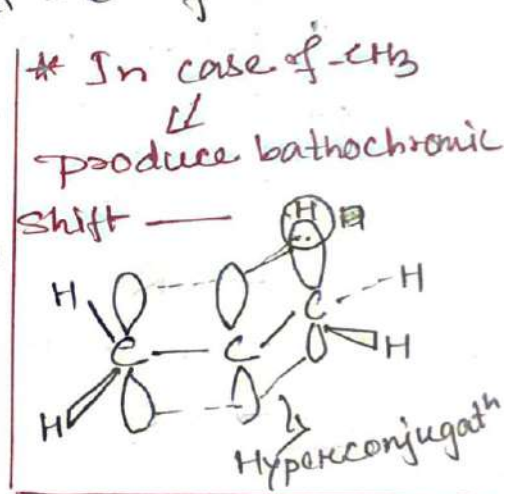 * In case of -CH3
⇓
produce bathochromic
Shift —
H H
H C — C C H
H H
Hyperconjugatⁿ